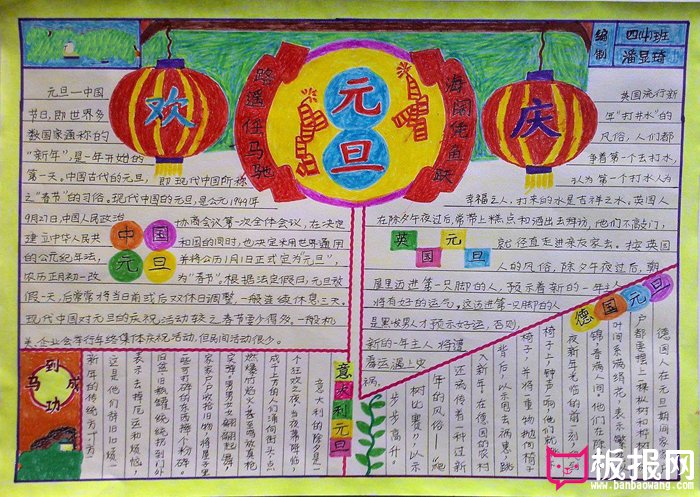 欢
庆
元
旦
路遥任马驰
海阔凭鱼跃
编制
四(4)班
潘昱琦
元旦—中国
节日,即世界多
数国家通称的
“新年”,是一年开始的
第一天。中国古代的元旦,即现代中国所称
之“春节”的习俗。现代中国的元旦,是公元1949年
9月27日,中国人民政治
协商会议第一次全体会议,在决定
建立中华人民共
和国的同时,也决定采用世界通用
的公元纪年法,
并将公历1月1日正式定为“元旦”,
农历正月初一改
为“春节”。根据法定假日,元旦放
假一天,后常常将当日前或后双休日调整,一般连续休息三天。
现代中国对元旦的庆祝活动较之春节重要少得多。一般机
关、企业会举行年终集体庆祝活动,但民间活动很少。
中国
元旦
英国流行新
年“打井水”的
风俗,人们都
争着第一个去打水,
认为第一个打水人为
幸福之人,打来的水是吉祥之水,英国人
在除夕午夜过后,常带上糕点和酒出去拜访,他们不敲门,
就径直走进亲友家去。按英国
人的风俗,除夕午夜过后,朝
屋里迈进第一只脚的人,预示着新的一年主人
将有好的运气。
新的一年主人将遭
英国元旦
德国元旦
德国人在元旦期间,家
户都要摆上一棵枞树和桦树
叶间系满绢花,表示繁
锦,春满人间。他们在除
夜新年来临前一刻,
椅子,并将一重物抛向椅子
背后,以示甩去祸患,跳
入新年。在德国的农村
还流传着一种过新
年的风俗—“爬
树比赛”,以示
步步高升。
意大利元旦
意大利的除夕是一
个狂欢之夜,当夜幕降临,
成千上万的人们涌向街头,点
燃爆竹焰火,甚至鸣放真枪
实弹。男男女女翩翩起舞,
家家户户收拾旧物,将屋子里
旧盆旧瓶罐统统扔到门外,
表示去掉厄运和烦恼,
这是他们辞旧
新年的传统方式。
马到成功
板报网
www.banbaowang.com